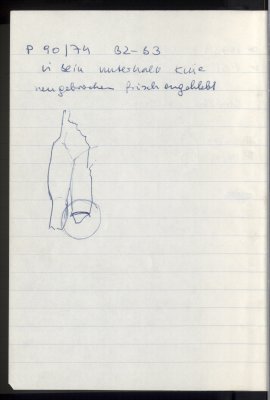 P 90/74 B2-B3
li Bein unterhalb Knie
neugebrochen frisch angeklebt